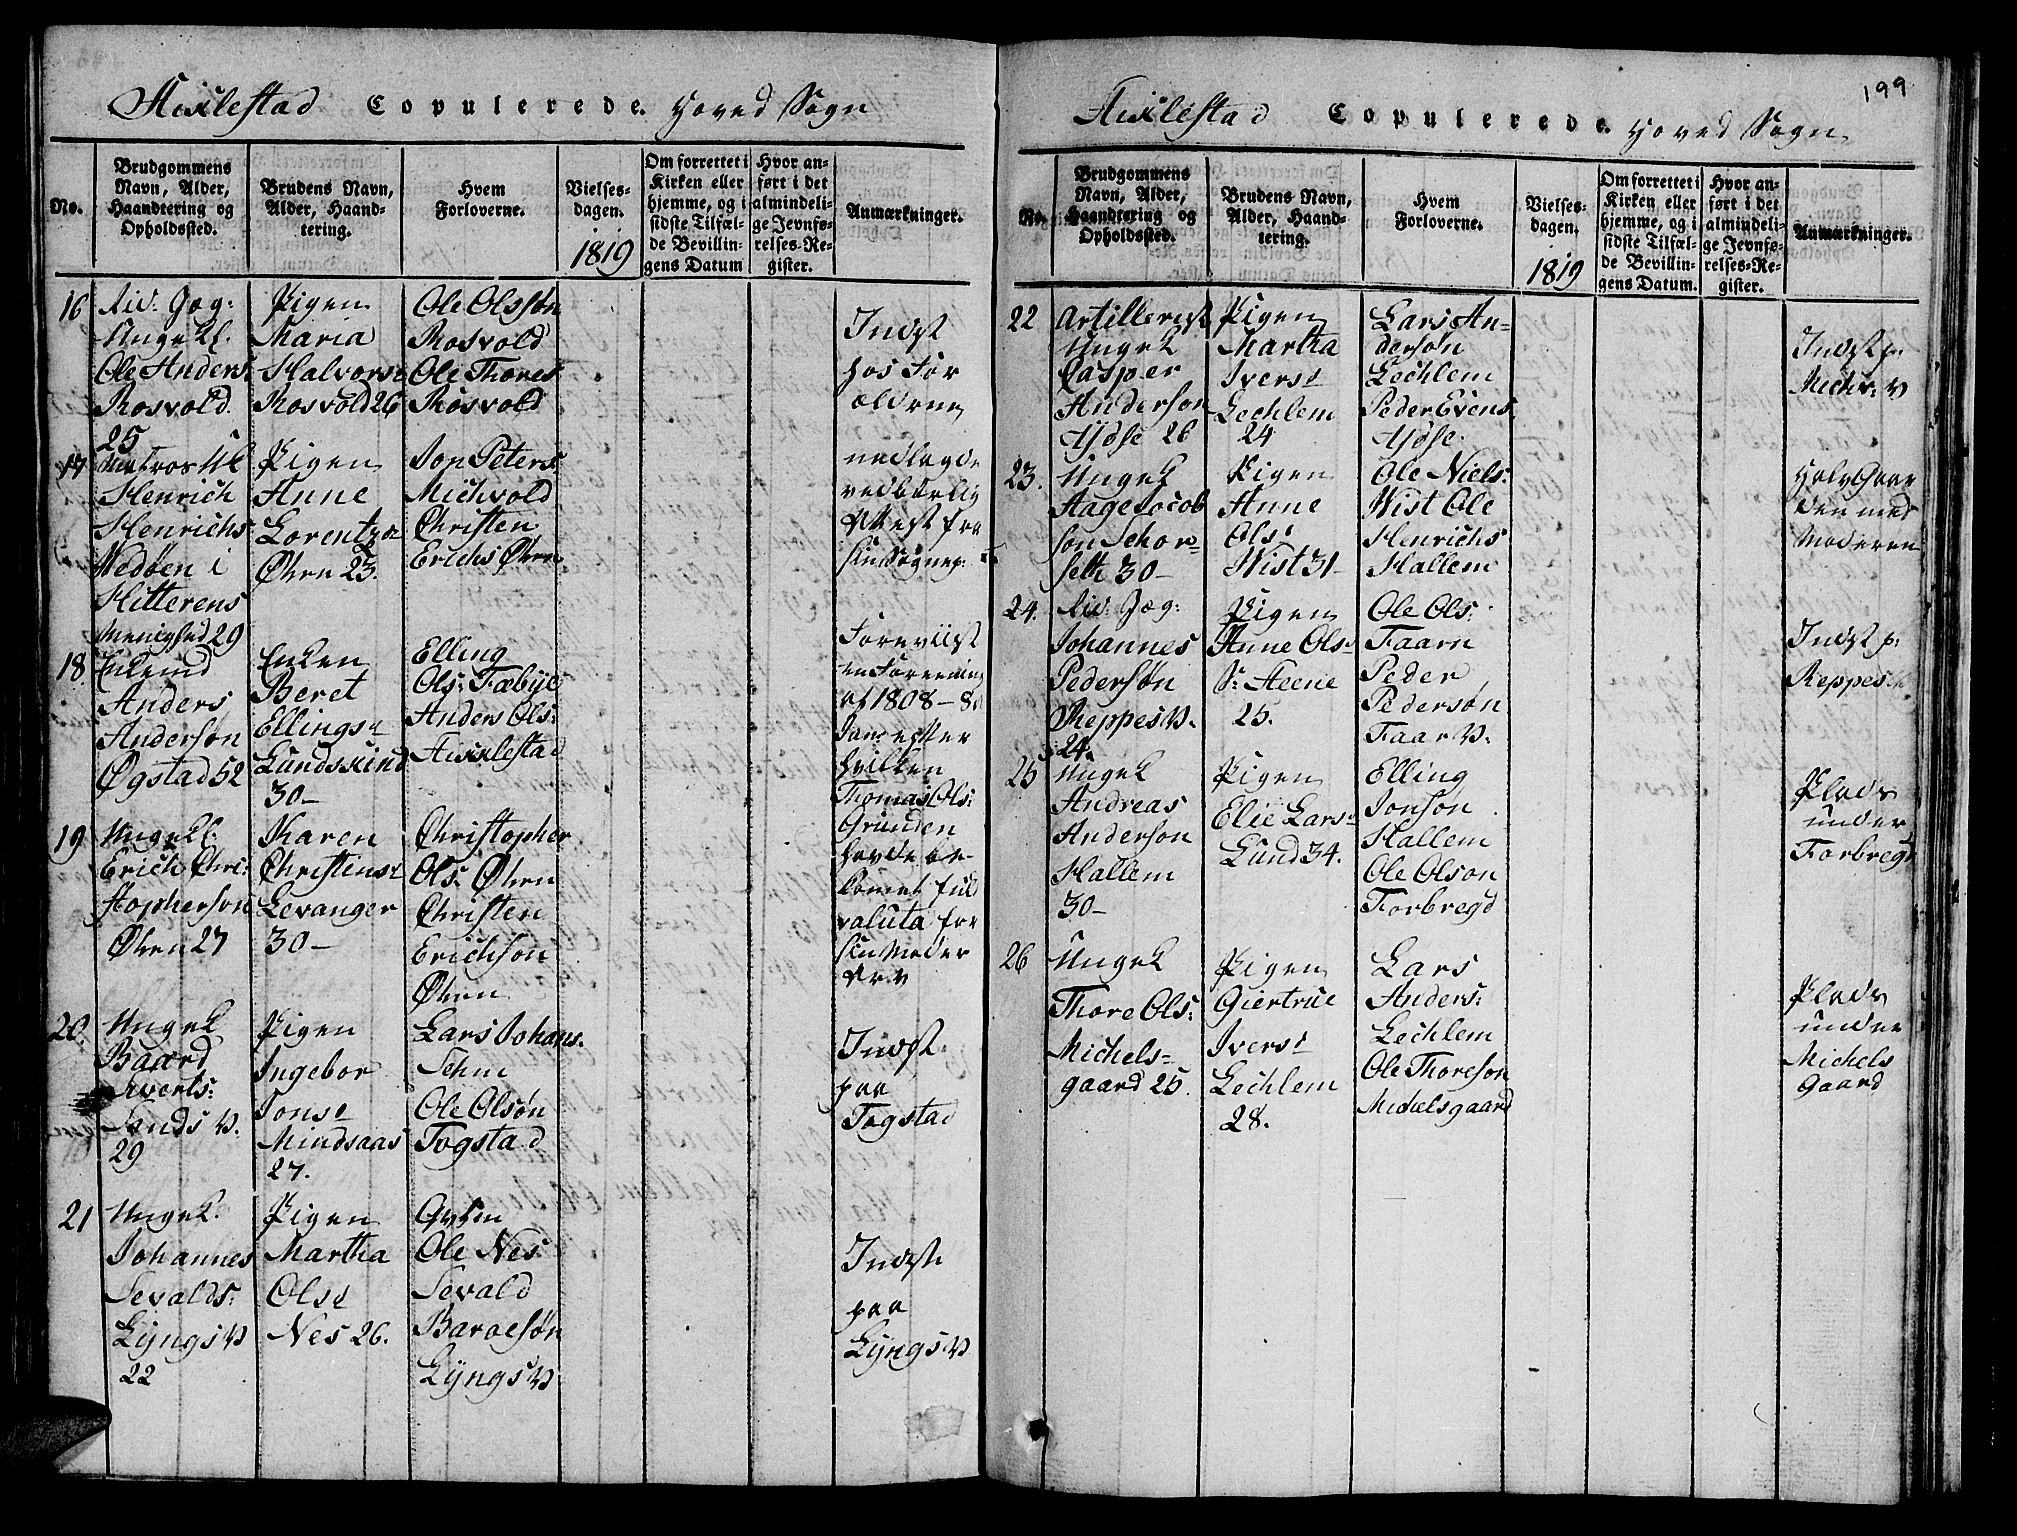 Stixlestad Copulerede. Hoved Sogn
No.
Brudgommens
Navn, Alder,
Haandtering og
Opholdssted.
Brudens Navn,
Alder, Haand-
tering.
Hvem
Forloverne.
Vielses-
dagen.
1819
Om forrettet i
Kirken eller
hjemme, og i
sidste Tilfæl-
de Bevillin-
gens Datum
Hvor an-
ført i det
almindeli-
ge Jevnfø-
relses-Re-
gister.
Anmærkninger.
16
Riv. Jæg:
Ungekl.
Ole Anders:
Rosvold.
25
Pigen
Maria
Halvors:
Rosvold 26
Ole Olssøn
Rosvold
Ole Thores
Rosvold
Indst
hos For
ældrene
17
Matros Uk
Henrich
Henrichs
Wedøen i
Hitterens
Menighed 29
Pigen
Anne
Lorentzd
Øhren 23.
Jon Peters:
Michvold
Christen
Erichs Øhren
nedlagde
vedbørlig
Attest fra
sin Sognep:
18
Enkemd
Anders
Andersøn
Øgstad 52
Enken
Beret
Ellings:
Lundskind
30-
Elling
Ols: Fæbye
Anders Ols:
Stixlestad
Foreviist
en Forening
af 1808-8d
Jan: efter
hvilken
Thomas Ols:
Grunden
havde be-
komet fuld
valuta for
sin Moder
Arv
19
Ungekl.
Erich Chri-
stopherson
Øhren 27
Karen
Christins:
Levanger
30-
Christopher
Ols: Øhren
Christen
Erichson
Øhren
20.
Ungek
Baard
Siverts:
Sands V.
29
Pigen
Ingebor
Jons:
Mindsaas
27.
Lars Johans.
Sehm
Ole Olsøn
Togstad
Indst.
paa
Togstad
21
Ungek.
Johannes
Sevalds:
Lyngs V
22
Pigen
Martha
Ols:
Nes 26.
Gvsin
Ole Nes
Sevald
Baroesøn
Lyngs V
Indst.
paa
Lyngs V
199
Stixlestad Copulerede. Hoved Sogn
No.
Brudgommens
Navn, Alder,
Haandtering og
Opholdssted.
Brudens Navn,
Alder, Haand-
tering.
Hvem
Forloverne.
Vielses-
dagen.
1819
Om forrettet i
Kirken eller
hjemme, og i
sidste Tilfæl-
de Bevillin-
gens Datum.
Hvor an-
ført i det
almindeli-
ge Jevnfø-
relses-Re-
gister.
Anmærkninger.
22
Artillerist
Ungek
Casper
Anderson
Ydse 26
Pigen
Martha
Ivers:
Lechlem
24
Lars An-
dersøn
Lechlem
Peder Evens
Ydse.
Indst p:
Michv: V
23.
Ungek
Aage Jocob
son Schor-
seth 30-
Pigen
Anne
Ols:
Wist 31-
Ole Niels:
Wist Ole
Henrichs
Hallem
Halv Gaar
den med
Moderen
24.
Riv: Jæg:
Johannes
Pedersøn
Reppes V.
24.
Pigen
Anne Ols:
S: Steene
25.
Ole Ols:
Faarn
Peder
Pedersøn
Faar V.
Indst p:
Reppes
25
Ungek
Andreas
Anderson
Hallem
30-
Pigen
Elie Lars:
Lund 34.
Elling
Jonson
Hallem
Ole Olson
Forbregd
Plads
under
Forbregd
26
Ungek
Thore Ols:
Michels-
gaard 25
Pigen
Giertrue
Ivers:
Lechlem
28.
Lars
Anders:
Lechlem
Ole Thoreson
Michelsgaard
Plads
under
Michels
Gaard